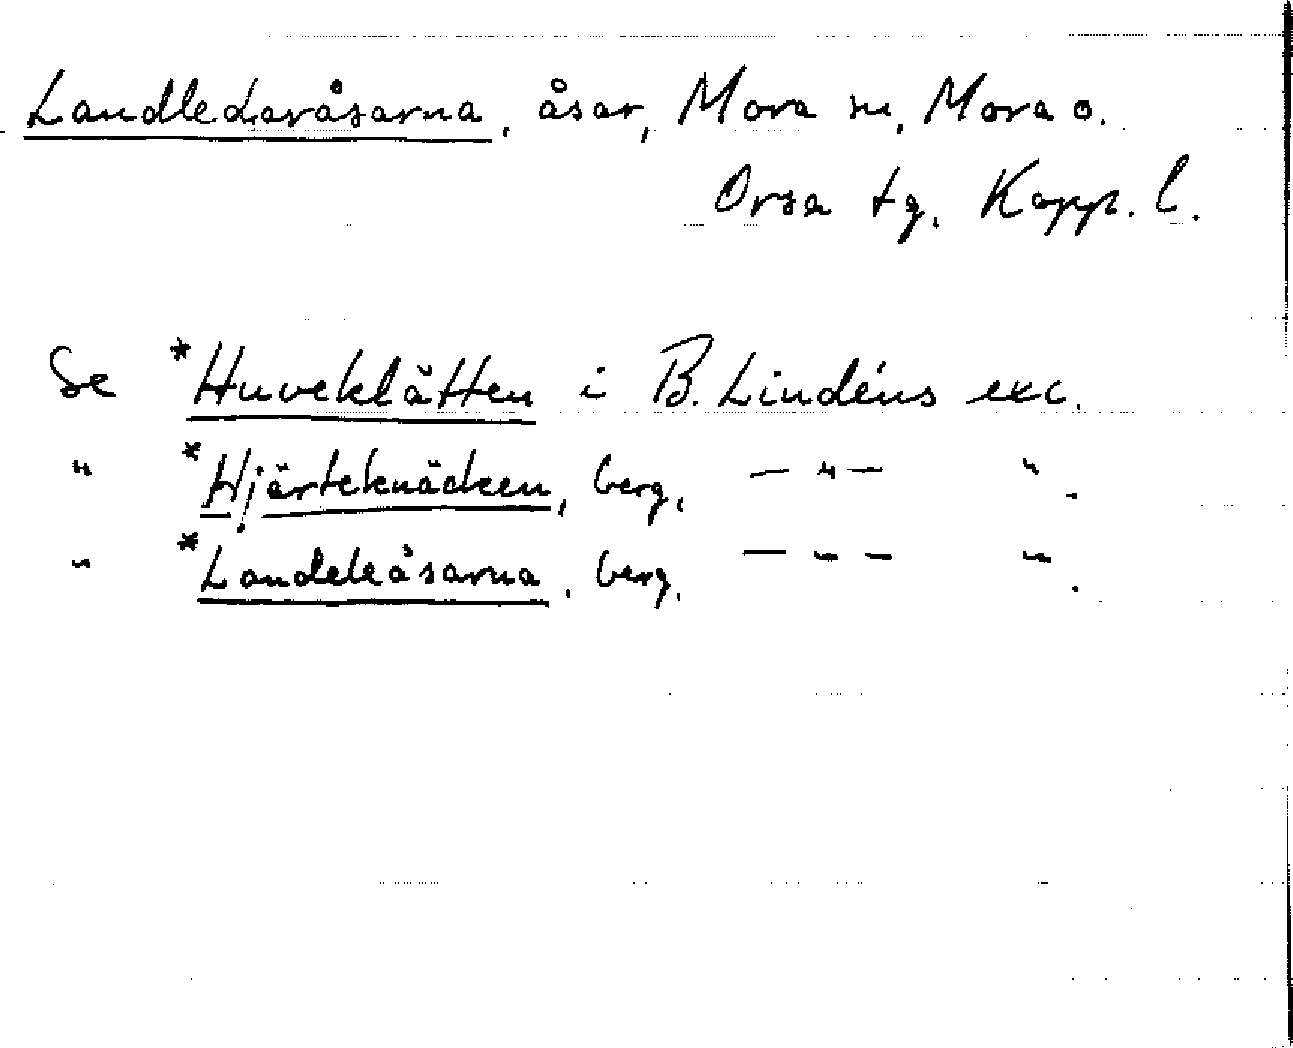 Landledaråsarna, åsar, Mora sn, Mora o.
Orsa tg. Kopp. l.
Se *Huveklätten i B. Lindéns exc.
" *Hjärteknäcken, berg, — " — ".
" *Landeleåsarna, berg, — " — ".